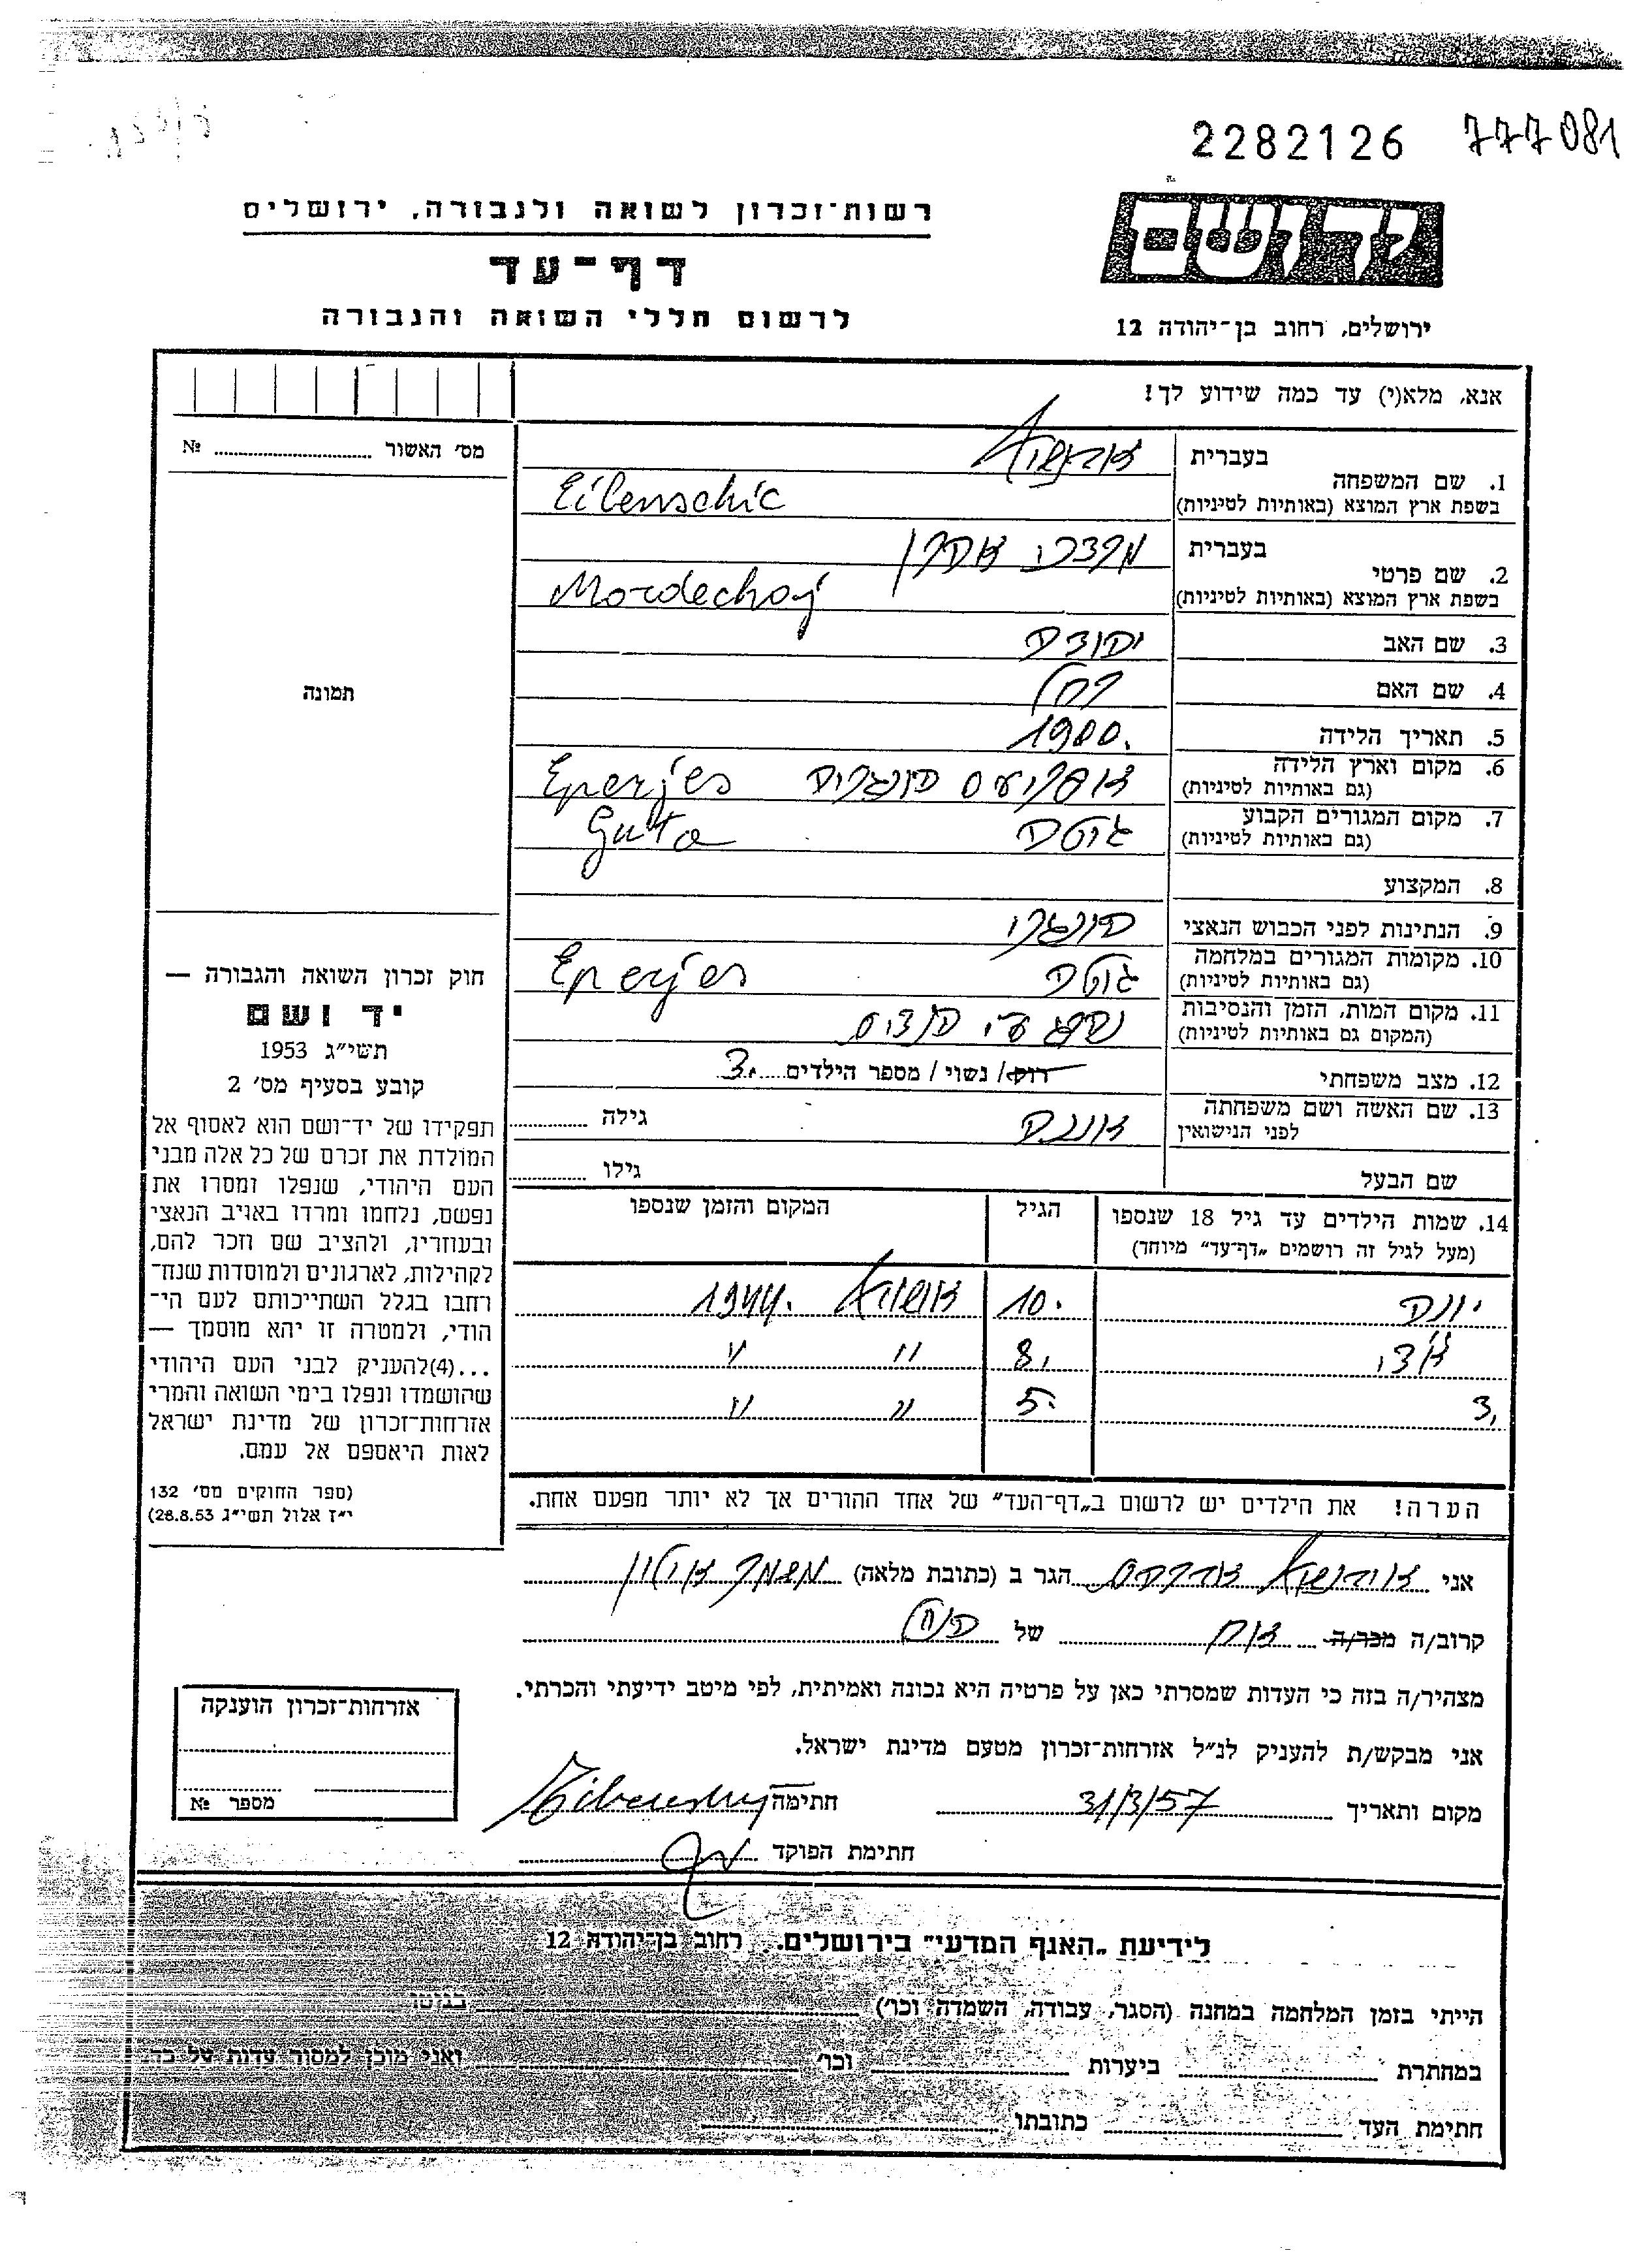 2282126 777081
יד ושם
ירושלים, רחוב בן־יהודה 12
רשות־זכרון לשואה ולגבורה, ירושלים
דף־עד
לרשום חללי השואה והגבורה
אנא, מלא(י) עד כמה שידוע לך!
מס׳ האשור № 
תמונה
1. שם המשפחה
בעברית
בשפת ארץ המוצא (באותיות לטיניות) Eilenschic
2. שם פרטי
בעברית מרדכי אהרן
בשפת ארץ המוצא (באותיות לטיניות) Mordechaj
3. שם האב יהודה
4. שם האם רחל
5. תאריך הלידה 1900.
6. מקום וארץ הלידה
(גם באותיות לטיניות) הונגריה Eperjes
7. מקום המגורים הקבוע
(גם באותיות לטיניות) גוטה Guta
8. המקצוע
9. הנתינות לפני הכבוש הנאצי הונגרי
10. מקומות המגורים במלחמה
(גם באותיות לטיניות) גוטה Eperjes
11. מקום המות, הזמן והנסיבות
(המקום גם באותיות לטיניות) נהרג ע״י
12. מצב משפחתי רוק/ נשוי / מספר הילדים 3.
13. שם האשה ושם משפחתה
לפני הנישואין גילה
שם הבעל גילו
14. שמות הילדים עד גיל 18 שנספו
(מעל לגיל זה רושמים „דף־עד״ מיוחד)
הגיל
המקום והזמן שנספו
יונה 10. אושויץ 1944.
8, " "
3, 5. " "
הערה! את הילדים יש לרשום ב„דף־העד״ של אחד ההורים אך לא יותר מפעם אחת.
חוק זכרון השואה והגבורה —
יד ושם
תשי״ג 1953
קובע בסעיף מס׳ 2
תפקידו של יד־ושם הוא לאסוף אל
המולדת את זכרם של כל אלה מבני
העם היהודי, שנפלו ומסרו את
נפשם, נלחמו ומרדו באויב הנאצי
ובעוזריו, ולהציב שם וזכר להם,
לקהילות, לארגונים ולמוסדות שנח־
רחבו בגלל השתייכותם לעם הי־
הודי, ולמטרה זו יהא מוסמך —
...(4)להעניק לבני העם היהודי
שהושמדו ונפלו בימי השואה והמרי
אזרחות־זכרון של מדינת ישראל
לאות היאספם אל עמם.
(ספר החוקים מס׳ 132
י״ז אלול תשי״ג 28.8.53)
אני הגר ב (כתובת מלאה) משמר אילון
קרוב/ה מכר/ה אח של הנ״ל
מצהיר/ה בזה כי העדות שמסרתי כאן על פרטיה היא נכונה ואמיתית, לפי מיטב ידיעתי והכרתי.
אני מבקש/ת להעניק לנ״ל אזרחות־זכרון מטעם מדינת ישראל.
מקום ותאריך 31/3/57 חתימה
חתימת הפוקד
אזרחות־זכרון הוענקה
מספר №
לידיעת „האגף המדעי״ בירושלים, רחוב בן־יהודה 12
הייתי בזמן המלחמה במחנה (הסגר, עבודה, השמדה וכו׳) בגיטו
במחתרת ביערות וכו׳ ואני מוכן למסור עדות על כך.
חתימת העד כתובתו